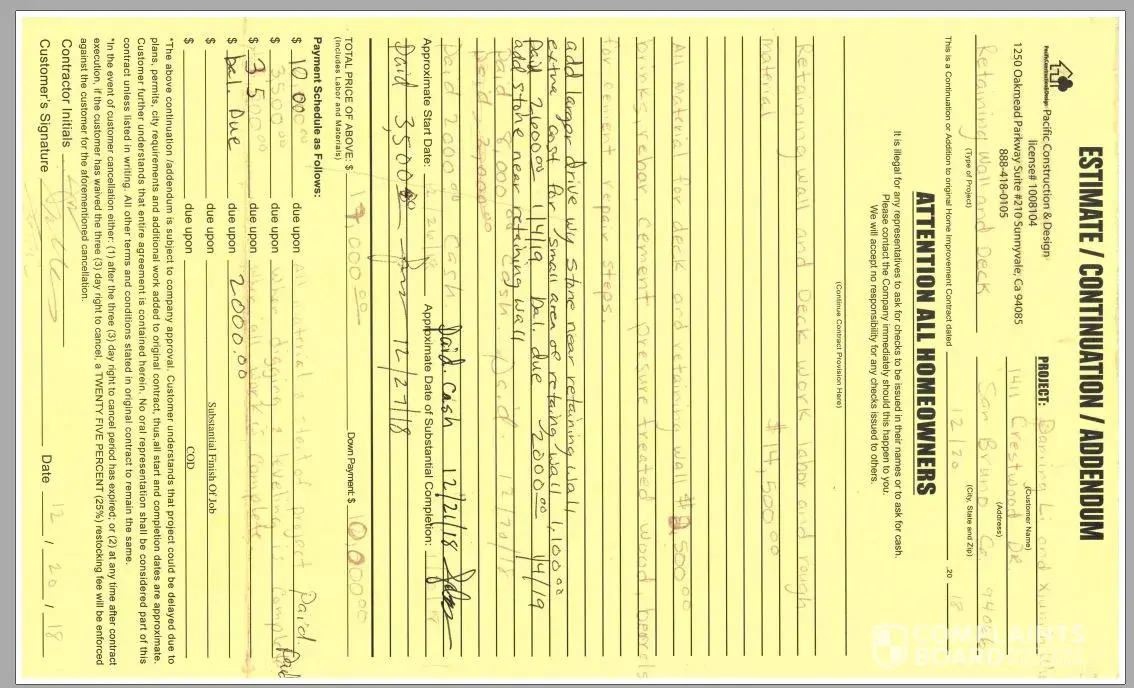 ESTIMATE / CONTINUATION / ADDENDUM
Pacific Construction & Design
license# 1008104
1250 Oakmead Parkway Suite #210 Sunnyvale, Ca 94085
888-418-0105
PROJECT: Danning Li and
(Customer Name)
1411 Crestwood DR
(Address)
San Bruno Ca 94066
(City, State and Zip)
Retaining Wall and Deck
(Type of Project)
This is a Continuation or Addition to original Home Improvement Contract dated 12/20 20 18
ATTENTION ALL HOMEOWNERS
It is illegal for any representatives to ask for checks to be issued in their names or to ask for cash.
Please contact the Company immediately should this happen to you.
We will accept no responsibility for any checks issued to others.
(Continue Contract Provision Here)
Retaining wall and Deck work labor and rough
material $14,500.00
All Material for deck and retaining wall $ 500.00
bricks, rebar, cement, presure treated wood,
for cement repair steps
add larger drive wy stone near retaining wall
extra cost for small area of retaing wall 1,100.00
Paid 2,000.00 1/4/19 bal. due 2000.00 1/4/19
add stone near retaining wall
Paid 8,000 Cash 12/20/18
Paid 2000.00 Cash Paid. Cash 12/21/18
Approximate Start Date: Approximate Date of Substantial Completion:
Paid 3,500.00 12/27/18
TOTAL PRICE OF ABOVE: $ 000.00 Down Payment $
(Includes Labor and Materials)
Payment Schedule as Follows:
$ 10000.00 due upon All material start of project Paid.
$ 3500.00 due upon when digging leveling complete Paid
$ 3500.00 due upon When all work is complete
$ bal. Due due upon 2000.00
$ due upon Substantial Finish Of Job
$ due upon COD
*The above continuation /addendum is subject to company approval. Customer understands that project could be delayed due to
plans, permits, city requirements and additional work added to original contract, thus,all start and completion dates are approximate.
Customer further understands that entire agreement is contained herein. No oral representation shall be considered part of this
contract unless listed in writing. All other terms and conditions stated in original contract to remain the same.
*In the event of customer cancellation either: (1) after the three (3) day right to cancel period has expired; or (2) at any time after contract
execution, if the customer has waived the three (3) day right to cancel, a TWENTY FIVE PERCENT (25%) restocking fee will be enforced
against the customer for the aforementioned cancellation.
Contractor Initials
Customer's Signature Date 12 / 20 / 18
COMPLAINTS
BOARD